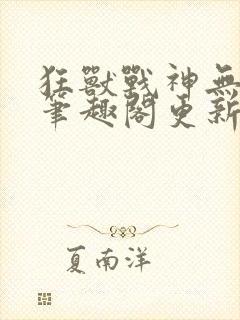 狂獸戰神無
筆趣閣更新
夏南洋